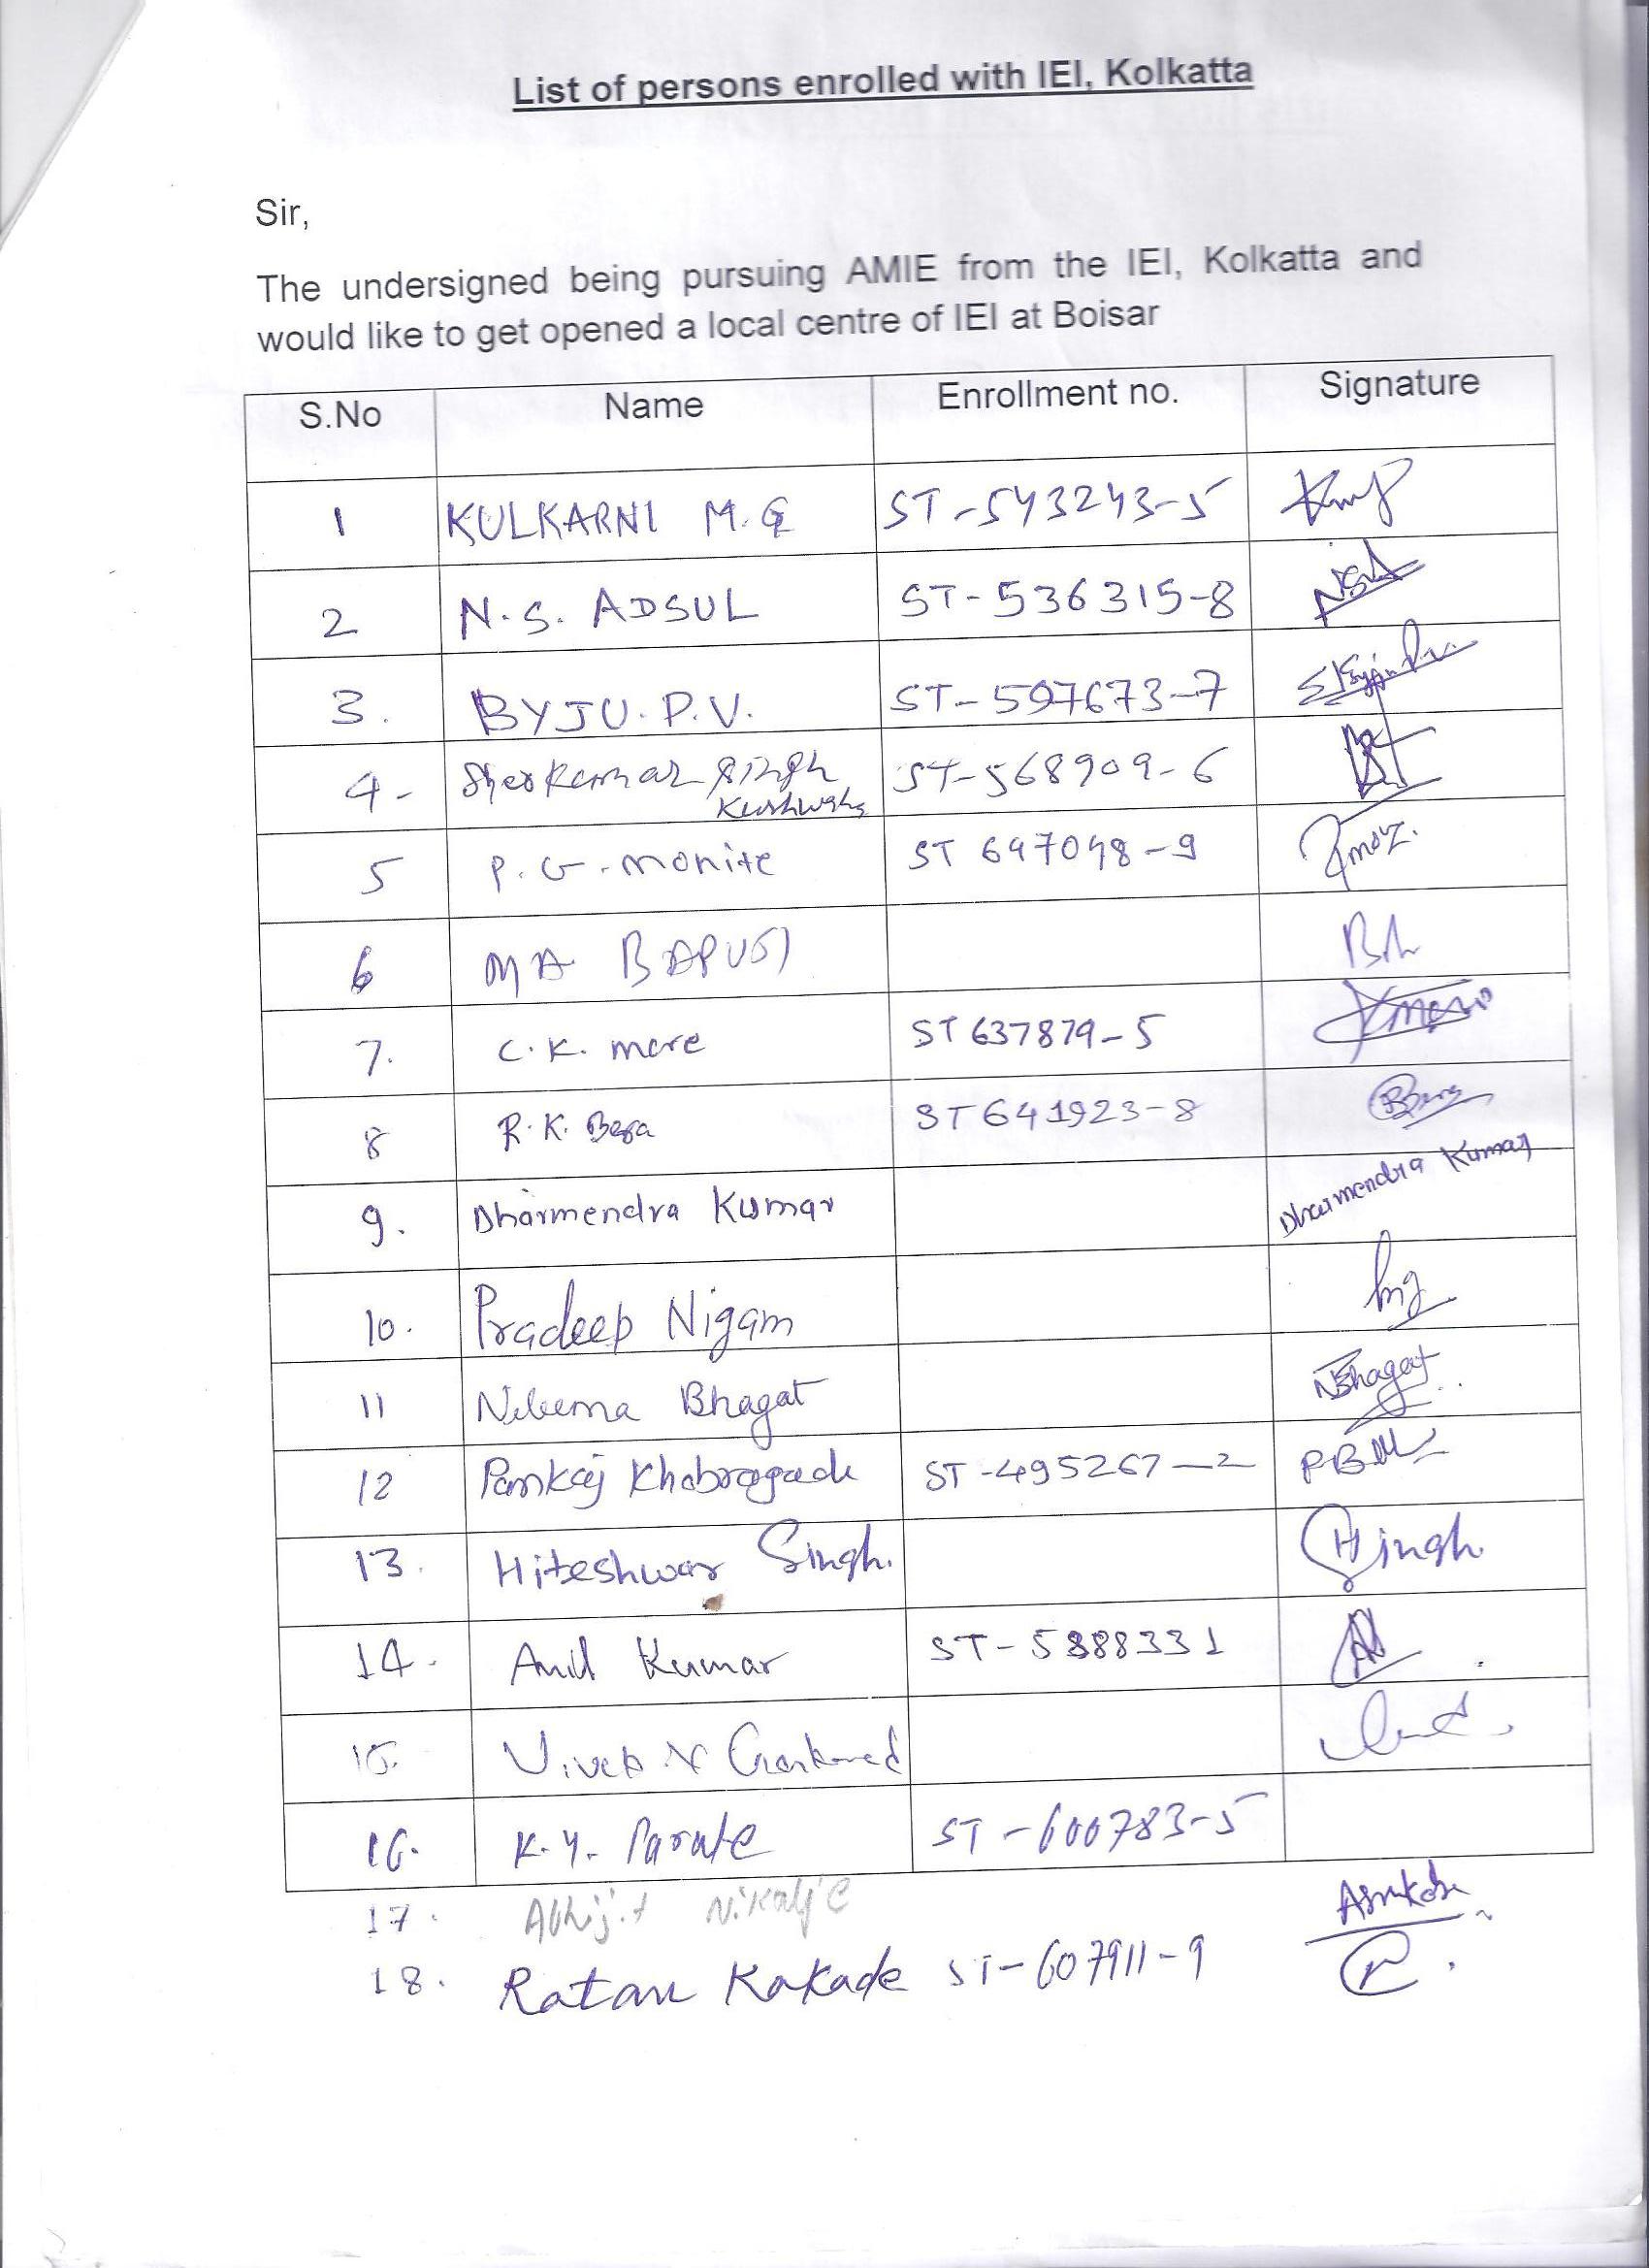 List of persons enrolled with IEI, Kolkatta
Sir,
The undersigned being pursuing AMIE from the IEI, Kolkatta and
would like to get opened a local centre of IEI at Boisar
S.No Name Enrollment no. Signature
1 KULKARNI M.G ST-543243-5
2 N.S. ADSUL ST-536315-8
3. BYJU.P.V. ST-597673-7
4- Singh ST-568909-6
Kushwaha
5 P.G. monite ST 647048-9
6 MA BAPUJI
7. C.K. more ST 637879-5
8 R.K. Bera ST641923-8
9. Dharmendra Kumar Dharmendra Kumar
10. Pradeep Nigam
11 Neleema Bhagat NBhagat
12 Pankaj Khobragade ST-495267-2
13. Hiteshwar Singh. HSingh
14. Anil Kumar ST-5888331
15. Vivek N
16. K.Y. Parate ST-600783-5
17. Abhijit Nikalje
18. Ratan Kakade ST-607911-9